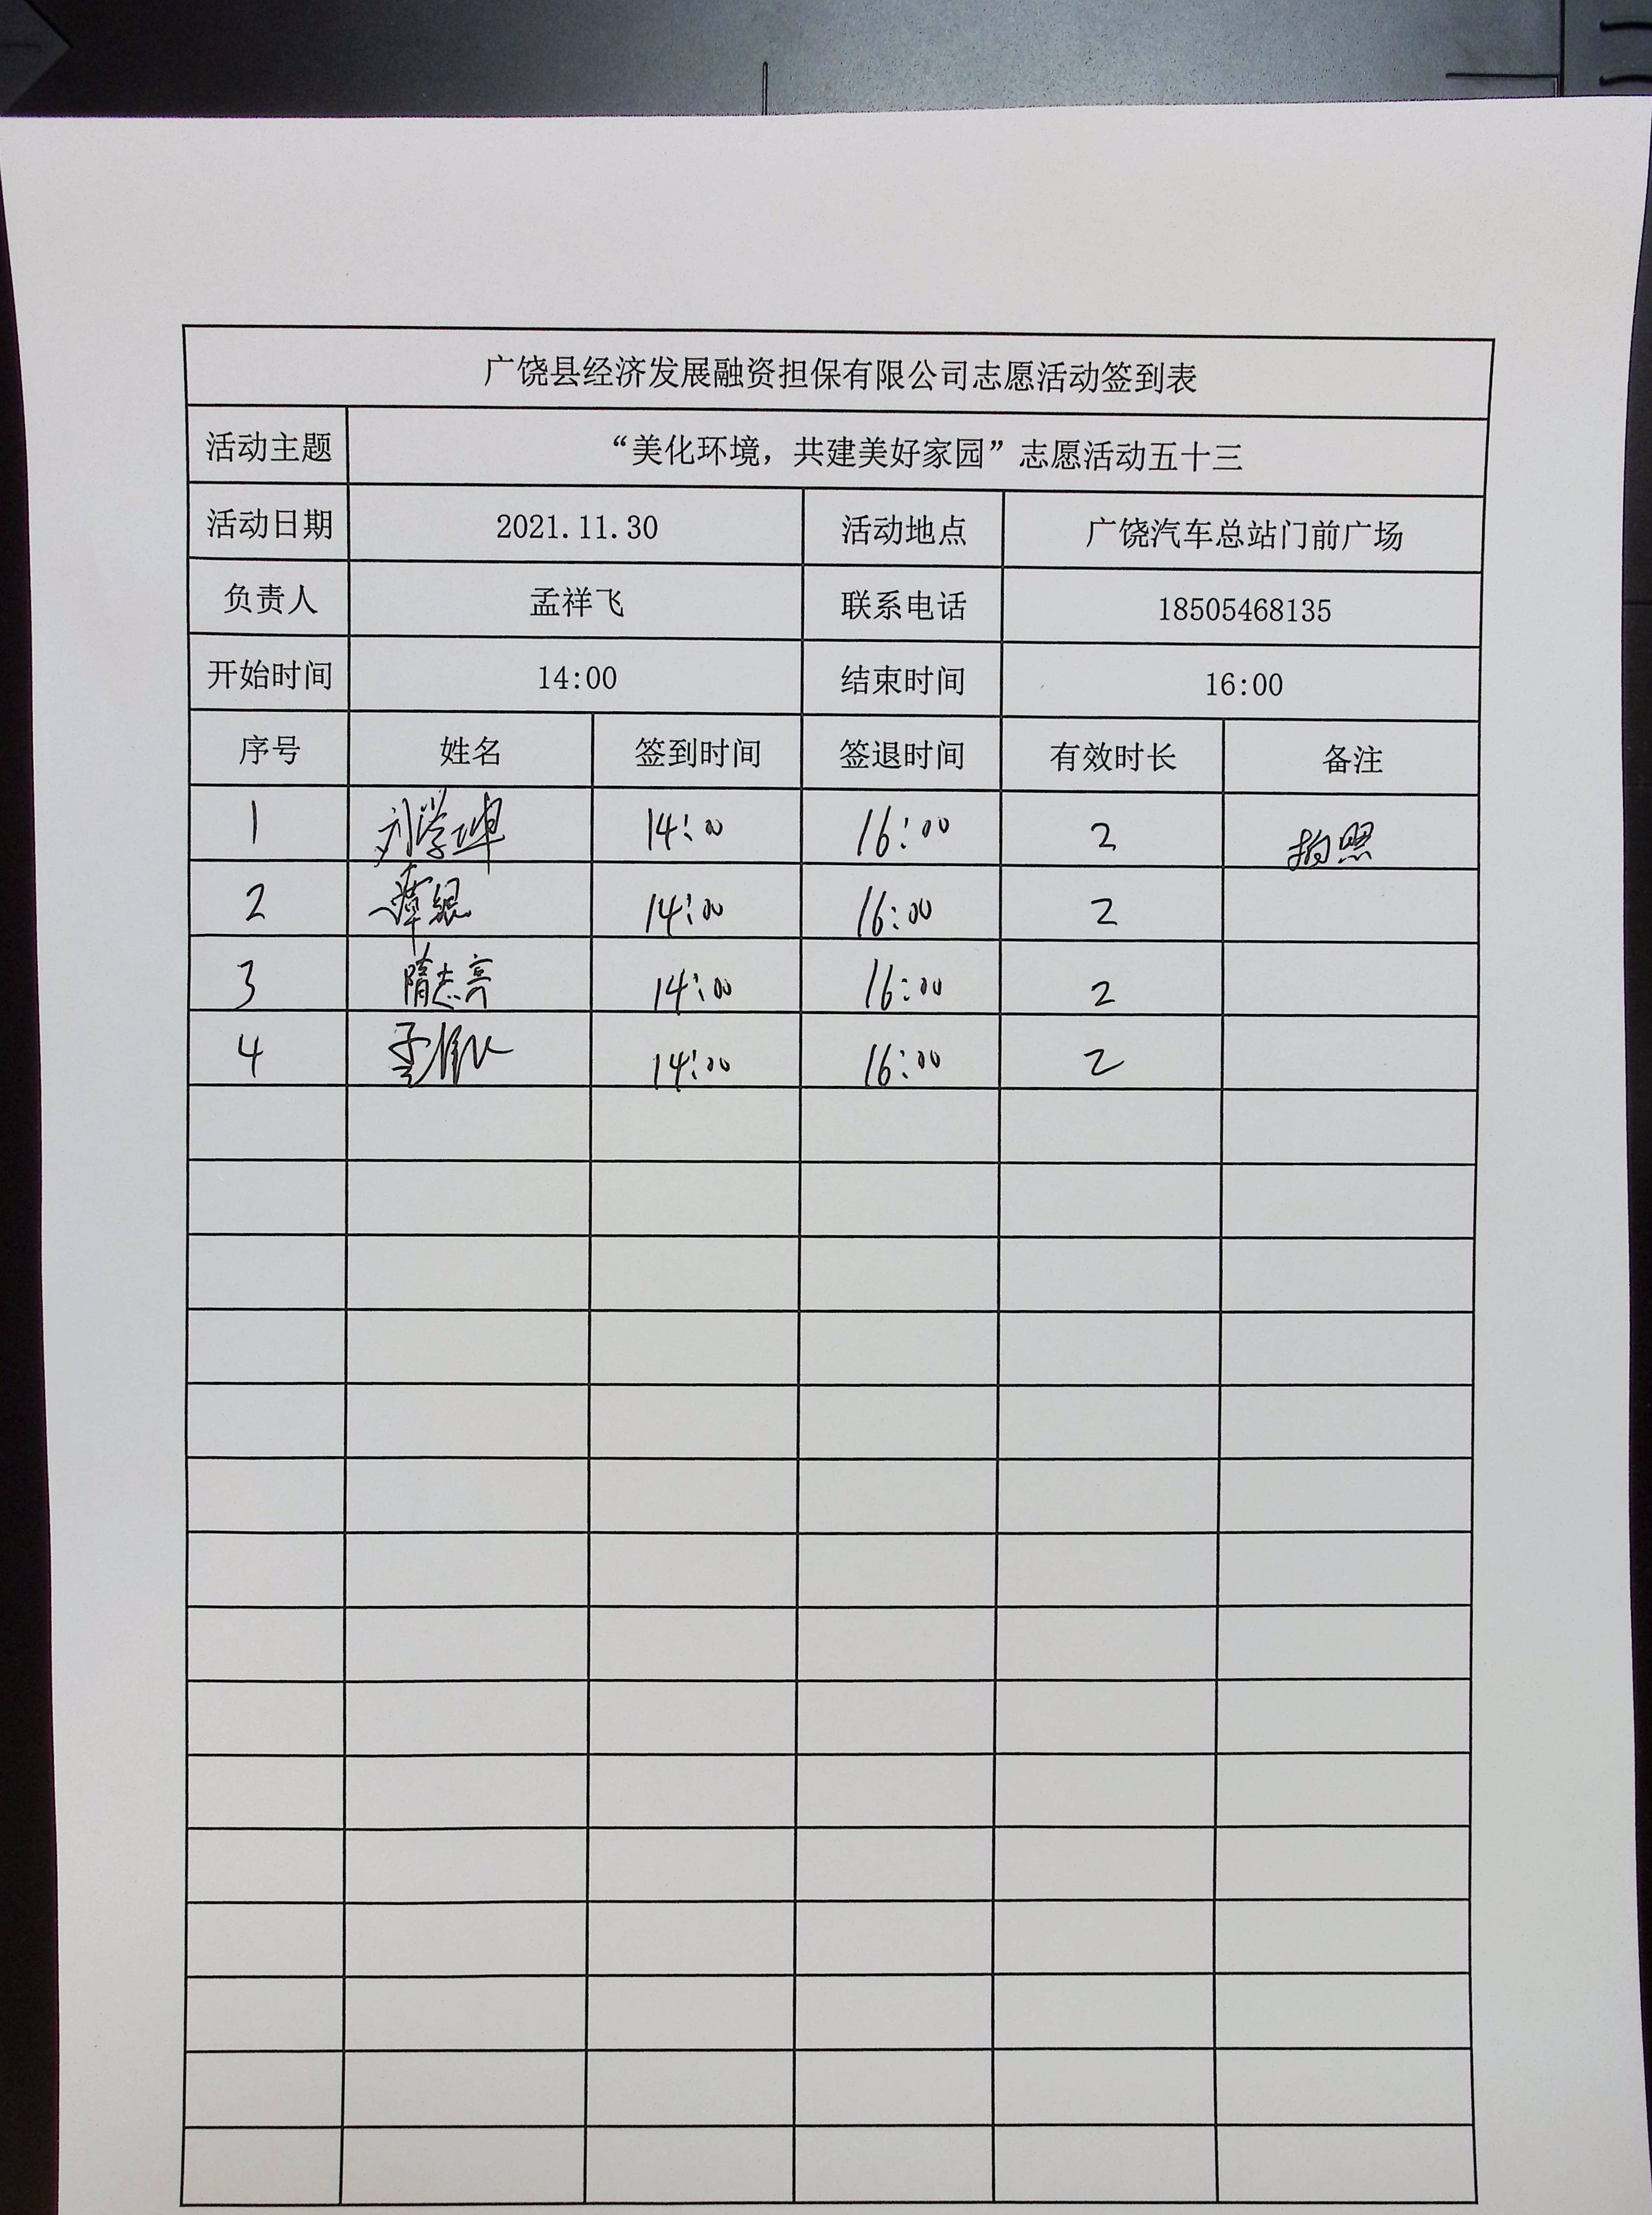 广饶县经济发展融资担保有限公司志愿活动签到表
活动主题 “美化环境，共建美好家园”志愿活动五十三
活动日期 2021.11.30 活动地点 广饶汽车总站门前广场
负责人 孟祥飞 联系电话 18505468135
开始时间 14:00 结束时间 16:00
序号 姓名 签到时间 签退时间 有效时长 备注
1 刘学坤 14:00 16:00 2 拍照
2 14:00 16:00 2
3 隋志亮 14:00 16:00 2
4 14:00 16:00 2